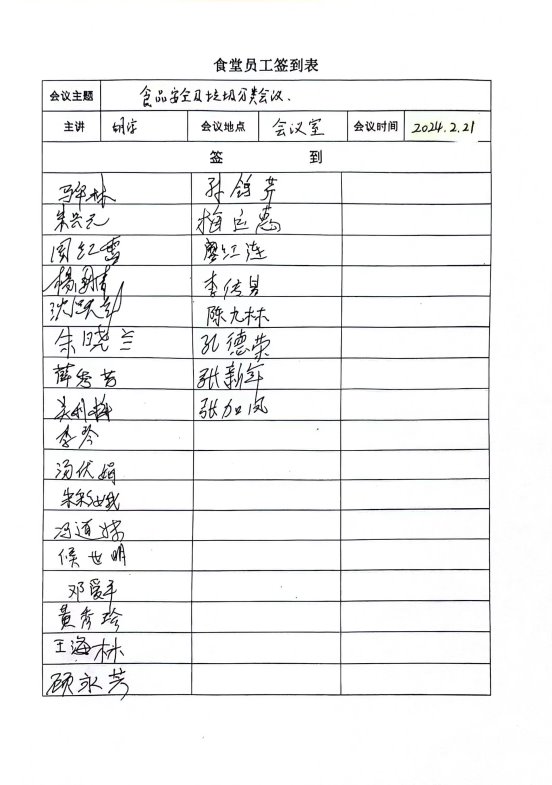 食堂员工签到表
会议主题 食品安全及垃圾分类会议.
主讲 胡宗 会议地点 会议室 会议时间 2024.2.21
签 到
孙锦芳
朱兴元 梅运惠
周红霞 廖江连
李传昌
陈九林
朱晓兰 孔德荣
薛秀芳 张新年
张加凤
李琴
汤伏娟
冯道妹
侯世明
邓爱平
黄秀珍
王海林
顾永芳